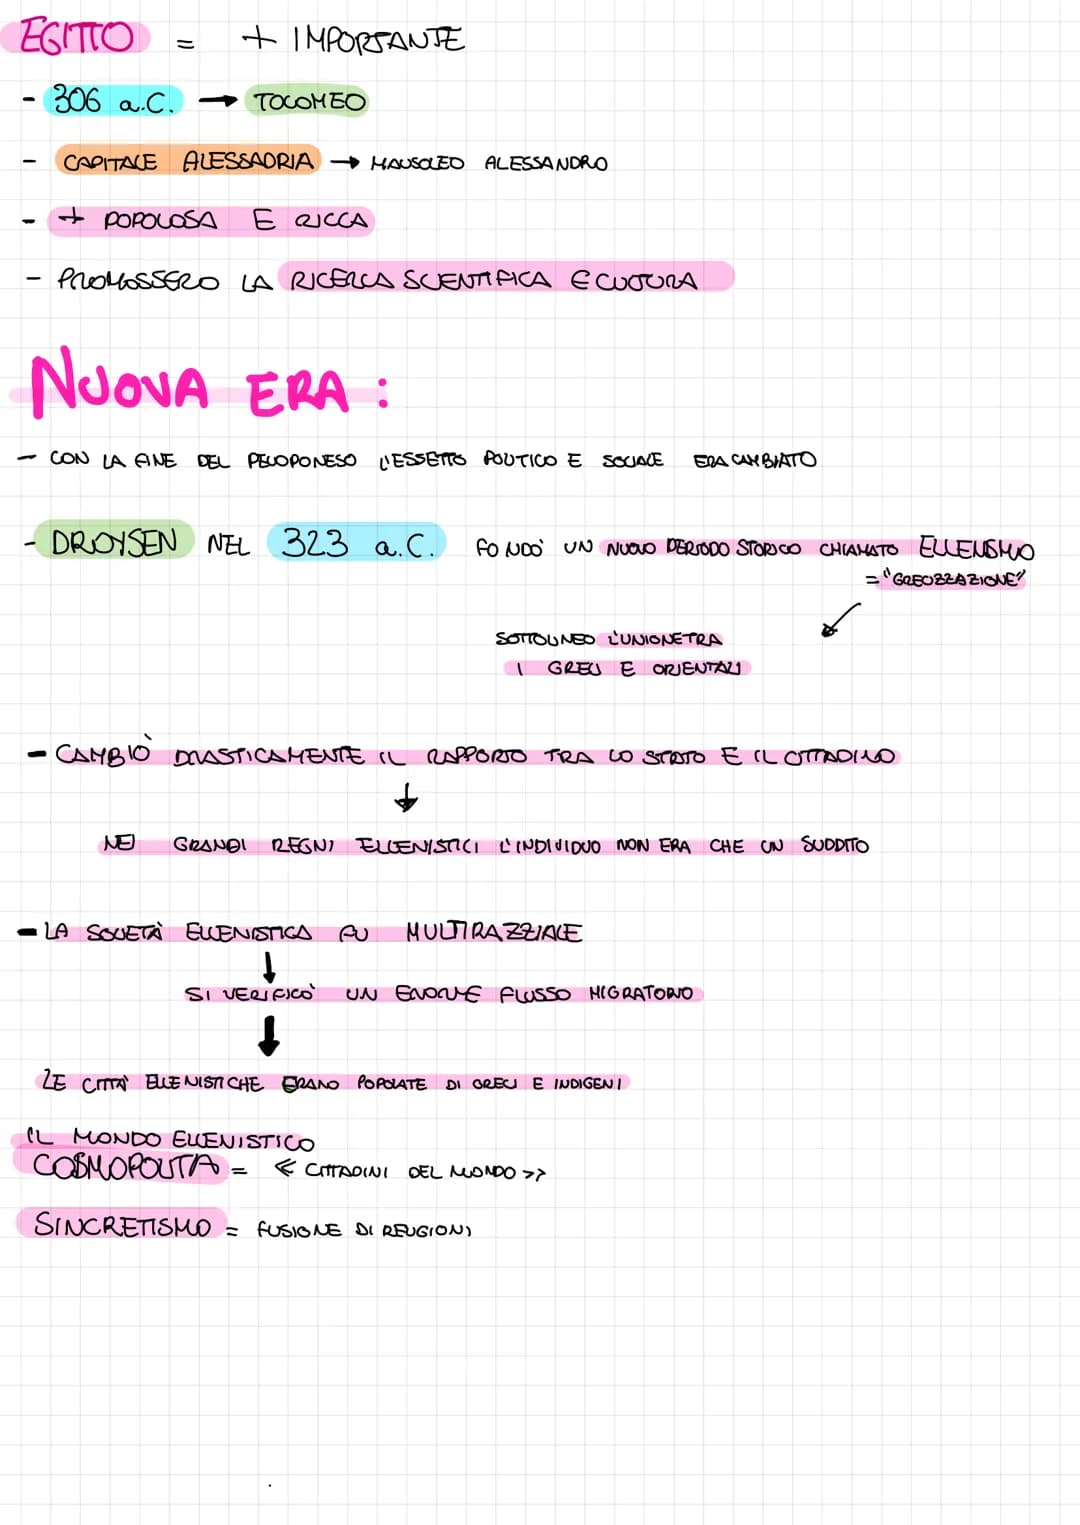 EGITTO = + IMPORTANTE
- 306 a.C. → TOLOMEO
- CAPITALE ALESSADRIA → MAUSOLEO ALESSANDRO
- + POPOLOSA E RICCA
- PROMOSSERO LA RICERCA SCIENTIFICA E CULTURA
NUOVA ERA :
- CON LA FINE DEL PELOPONESO L'ESSETTO POLITICO E SOCIALE ERA CAMBIATO
- DROYSEN NEL 323 a.C. FONDÒ UN NUOVO PERIODO STORICO CHIAMATO ELLENISMO
= "GRECIZZAZIONE"
SOTTOLINEO L'UNIONE TRA
I GRECI E ORIENTALI
- CAMBIÒ DRASTICAMENTE IL RAPPORTO TRA LO STATO E IL CITTADINO
↓
NEI GRANDI REGNI ELLENISTICI L'INDIVIDUO NON ERA CHE UN SUDDITO
- LA SOCIETÀ ELLENISTICA FU MULTIRAZZIALE
↓
SI VERIFICÒ UN ENORME FLUSSO MIGRATORIO
↓
LE CITTÀ ELLENISTICHE ERANO POPOLATE DI GRECI E INDIGENI
IL MONDO ELLENISTICO
COSMOPOLITA = << CITTADINI DEL MONDO >>
SINCRETISMO = FUSIONE DI RELIGIONI